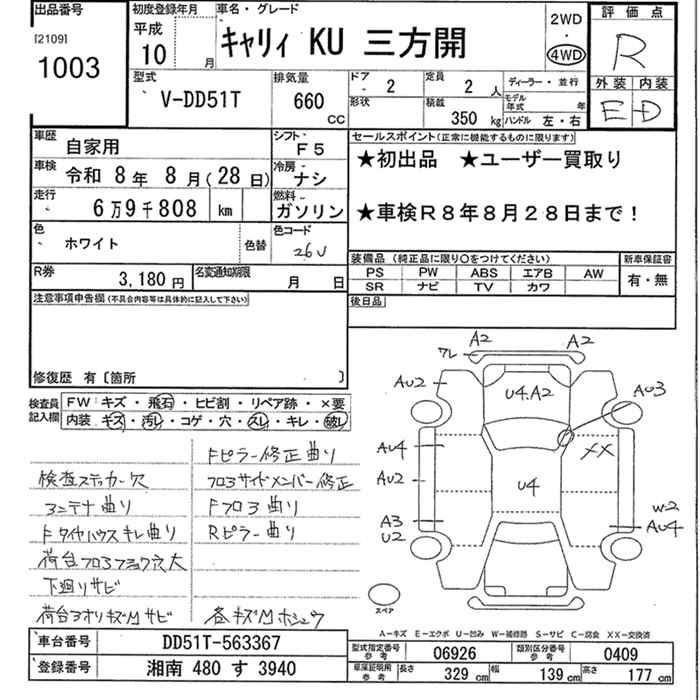 出品番号
[2109]
1003
初度登録年月
平成
10 月
車名・グレード
キャリィ KU 三方開
2WD
・
4WD
評価点
R
外装 内装
E D
型式
V-DD51T
排気量
660
CC
ドア
2
定員
2 人
ディーラー・並行
形状
積載
350 kg
モデル年式 年
ハンドル 左・右
車歴
自家用
シフト
F5
車検
令和 8年 8月(28日)
冷房
ナシ
走行
6万9千808 km
燃料
ガソリン
色
ホワイト
色替
色コード
26U
R券
3,180円
名変通知期限
月 日
セールスポイント(正常に機能するものに限ります)
★初出品 ★ユーザー買取り
★車検R8年8月28日まで!
装備品 (純正品に限り○をつけてください)
新車保証書
PS PW ABS エアB AW
SR ナビ TV カワ
有・無
後日品
注意事項申告欄(不具合内容等は具体的に記入して下さい)
修復歴 有〔箇所 〕
検査員記入欄
FW: キズ・飛石・ヒビ割・リペア跡・×要
内装: キズ・汚レ・コゲ・穴・スレ・キレ・破レ
Fピラー修正曲り
検査ステッカー穴
フロアサイドメンバー修正
アンテナ曲り
Fフロア曲り
Fタイヤハウスキレ曲り
Rピラー曲り
荷台フロアフック穴大
下廻りサビ
荷台アオリキズMサビ
各キズMホシュウ
A2
A2
ワレ
AU2
U4.A2
AU3
AU4
××
AU2
U4
A3
U2
W2
AU4
スペア
A-キズ E-エクボ U-凹み W-補修跡 S-サビ C-腐食 XX-交換済
車台番号
DD51T-563367
登録番号
湘南 480 す 3940
型式指定番号
参考
06926
類別区分番号
参考
0409
車庫証明用
参考
長さ
329 cm
幅
139 cm
高さ
177 cm